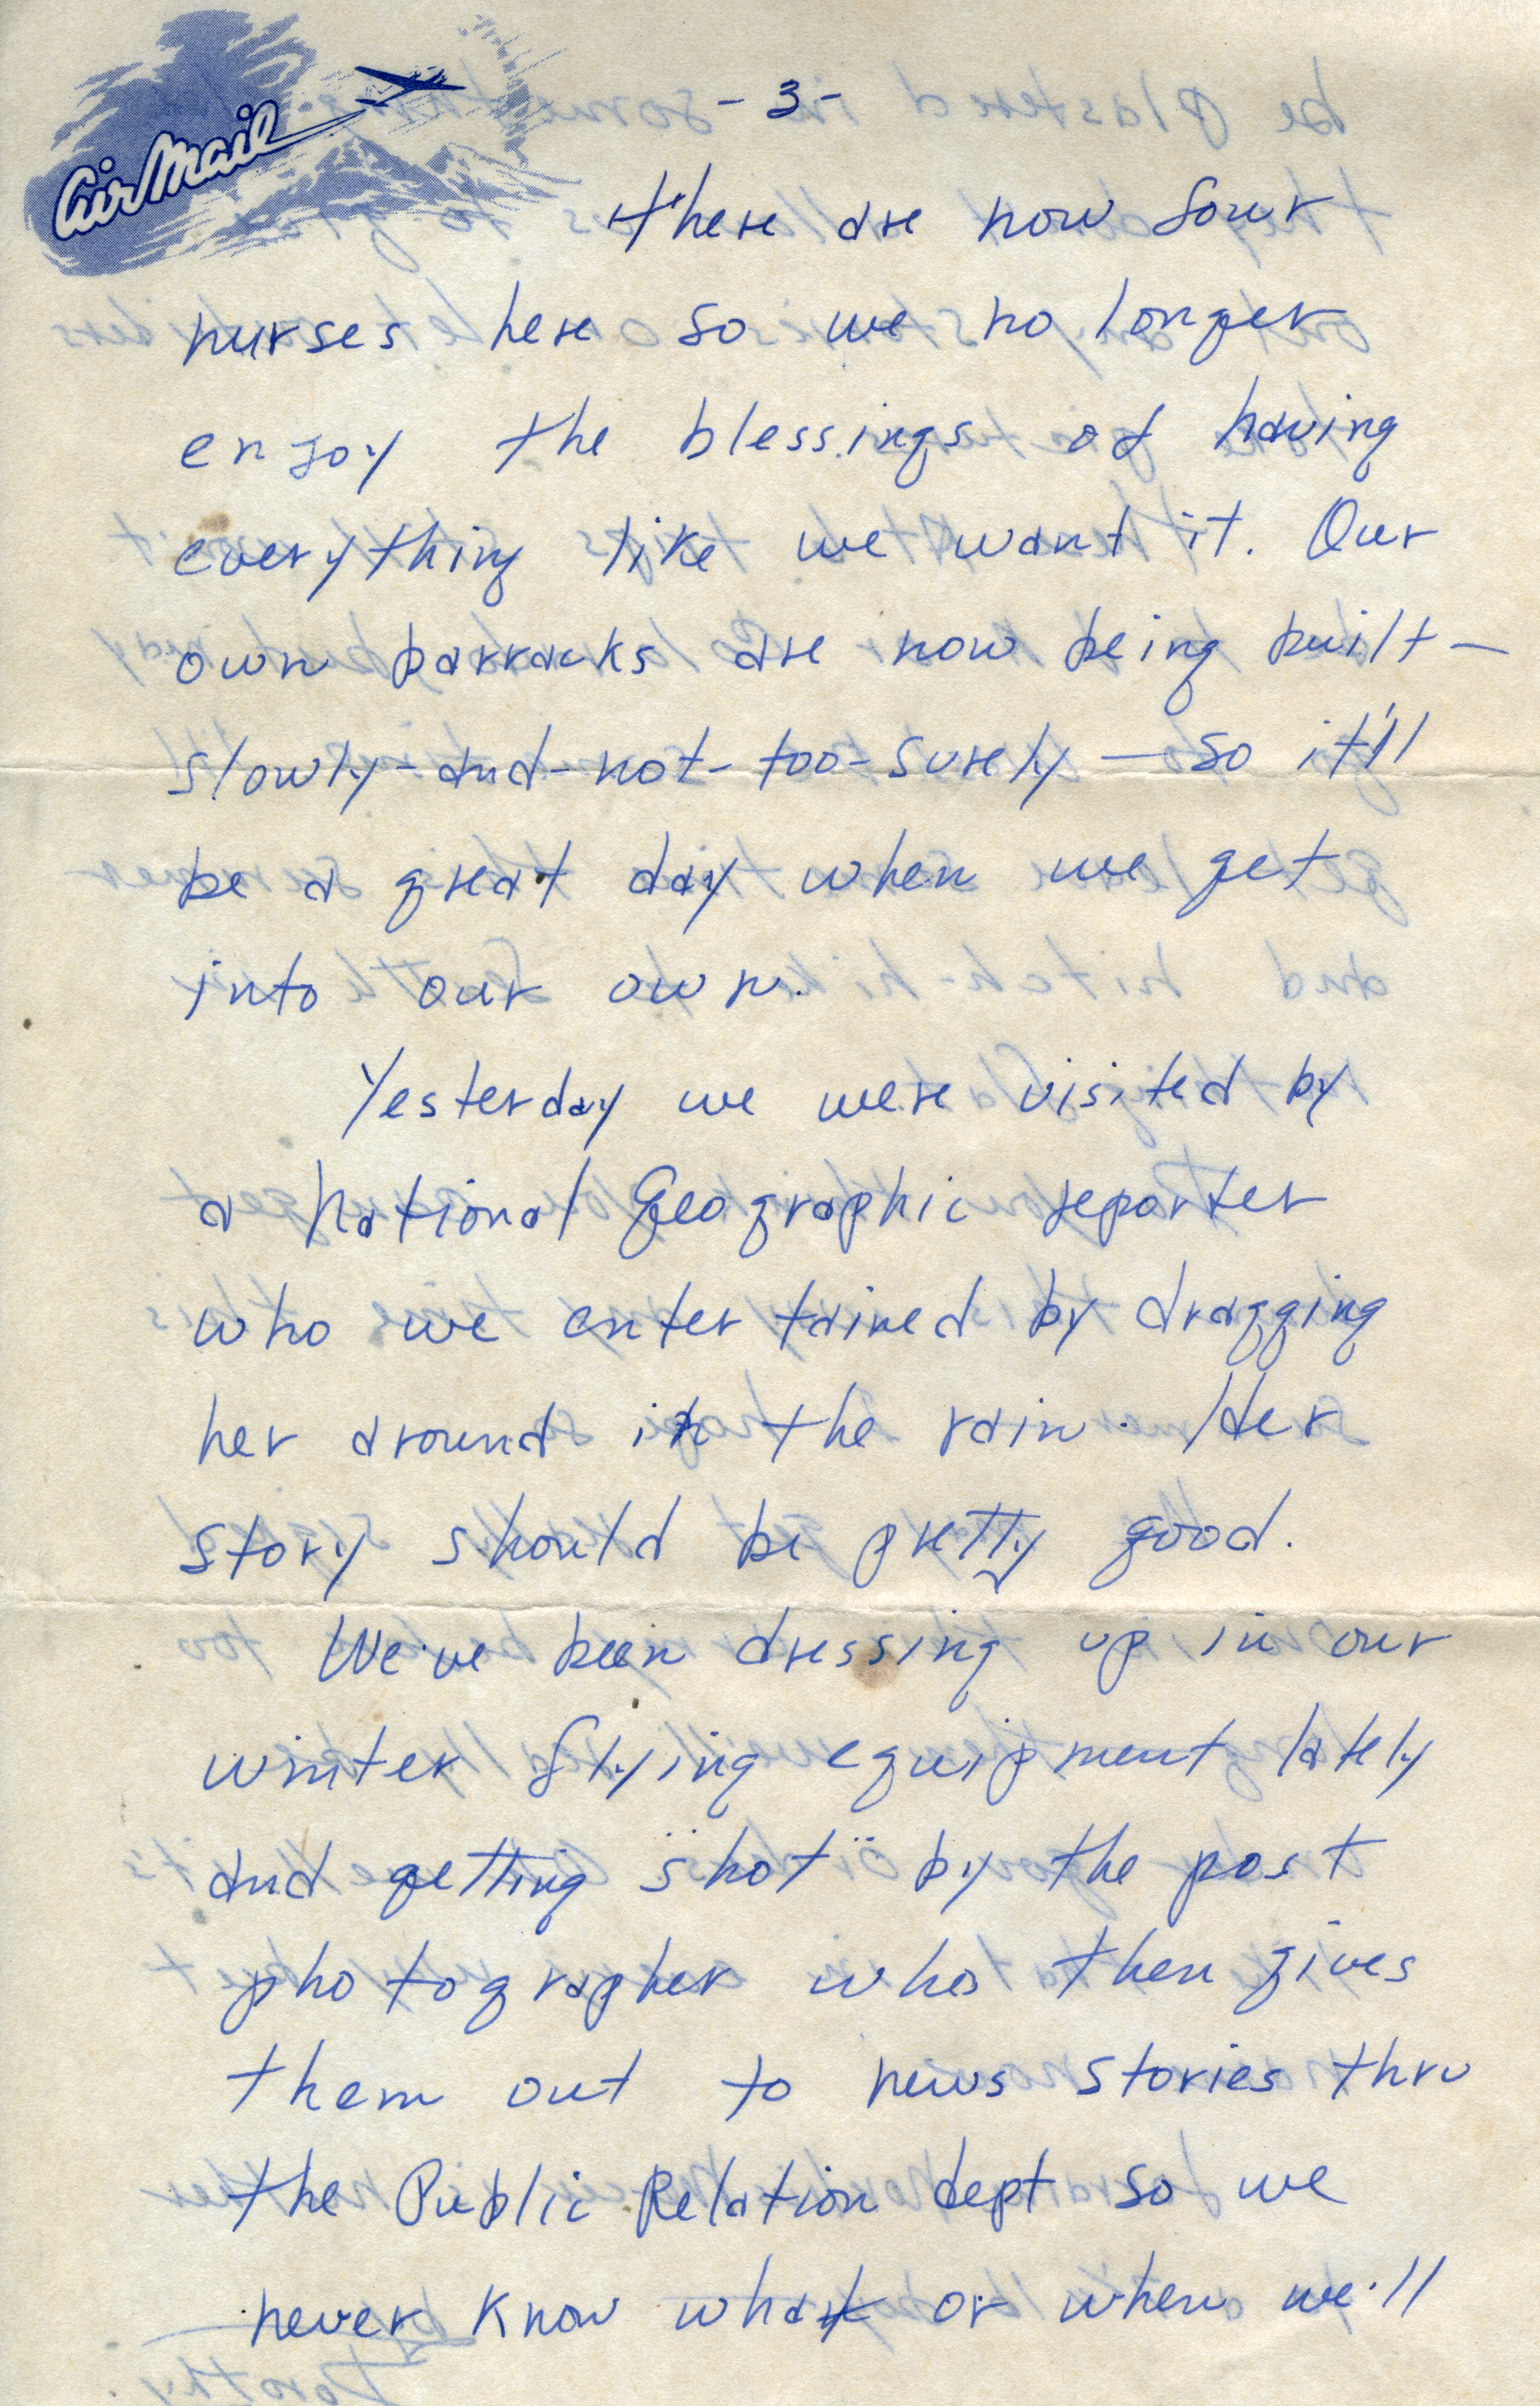 Air Mail
- 3 -
there are now four
nurses here so we no longer
enjoy the blessings of having
everything like we want it. Our
own barracks are now being built —
slowly-and-not-too-surely — so it'll
be a great day when we get
into our own.
Yesterday we were visited by
a National Geographic reporter
who we entertained by dragging
her around in the rain. Her
story should be pretty good.
We've been dressing up in our
winter flying equipment lately
and getting "shot" by the post
photographer who then gives
them out to news stories thru
the Public Relation dept so we
never know what or when we'll